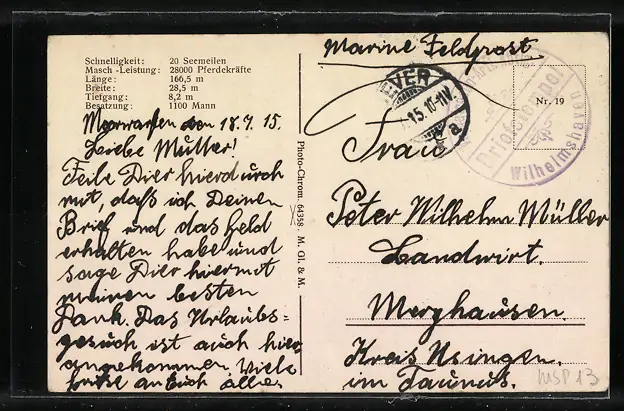 Schnelligkeit: 20 Seemeilen
Masch.-Leistung: 28000 Pferdekräfte
Länge: 166,5 m
Breite: 28,5 m
Tiefgang: 8,2 m
Besatzung: 1100 Mann
den 18.7.15.
Liebe Mutter!
Teile Dier hierdurch
mit, daß ich Deinen
Brief und das Geld
erhalten habe und
sage Dier hiermit
meinen besten
Dank. Das Urlaubs=
gesuch ist auch hier
angekommen. Viele
an Euch alles
Photo-Chrom. 64358. M. Gl. & M.
Marine Feldpost
VER
15.10-11V.
a
Briefstempel
Wilhelmshaven
Nr. 19
Frau
Peter Wilhelm Müller
Landwirt.
Merzhausen.
Kreis Usingen.
im Taunus.
MSP 13